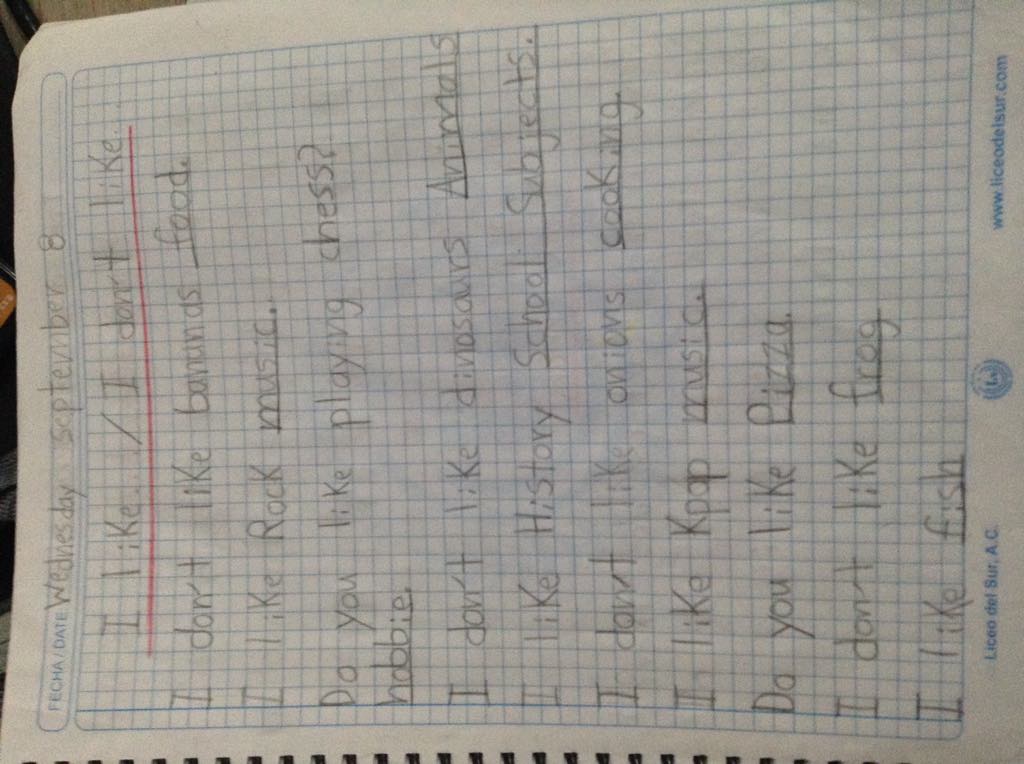 FECHA/DATE Wednesday september 8
I like... / I don't like...
I don't like bananas food.
I like Rock music.
Do you like playing chess?
hobbie.
I don't like dinosaurs Animals
I like History School Subjects.
I don't like onions cooking.
I like Kpop music.
Do you like Pizza.
I don't like frog
I like fish
Liceo del Sur, A.C.
www.liceodelsur.com